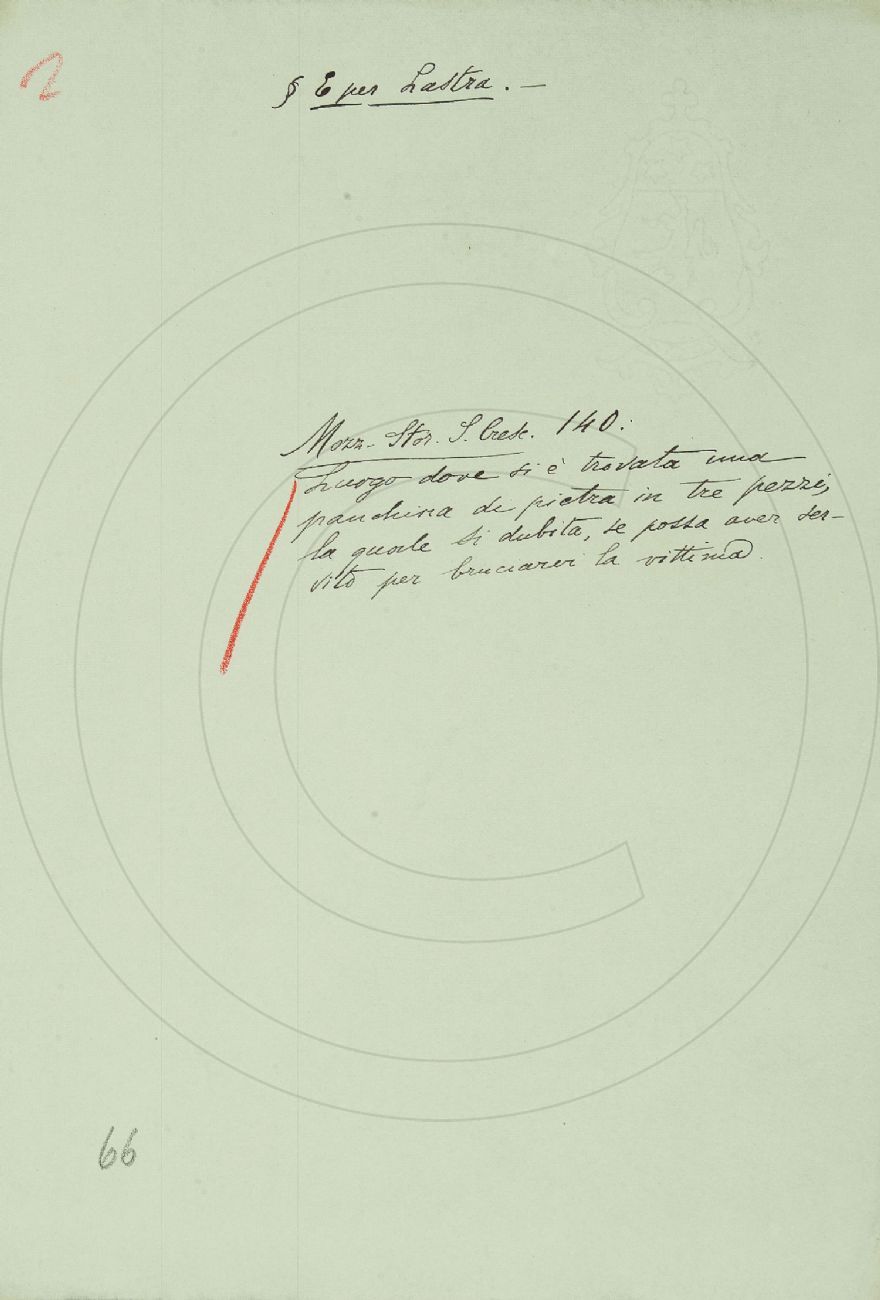 2
§ E per Lastra. —
Mozz. Stor. S. Cresc. 140:
Luogo dove si è trovata una
panchina di pietra in tre pezzi,
la quale si dubita, se possa aver ser-
vito per bruciarvi la vittima.
66